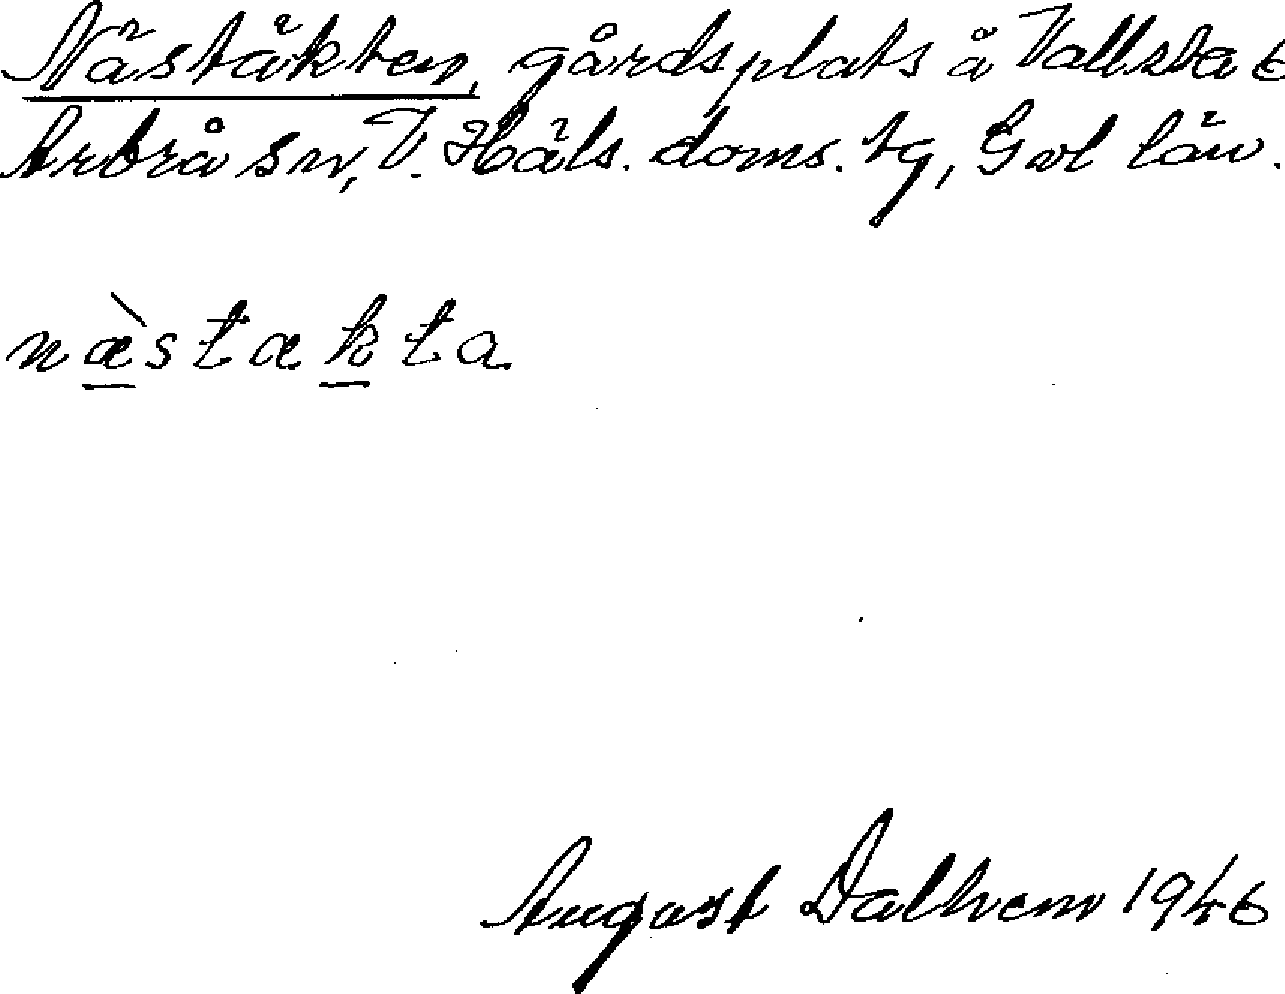 Nästäkten, gårdsplats å Vallsta i
Arbrå sn, V. Häls. doms. tg, Gvl län.
næ̀stækta
August Dalhem 1946